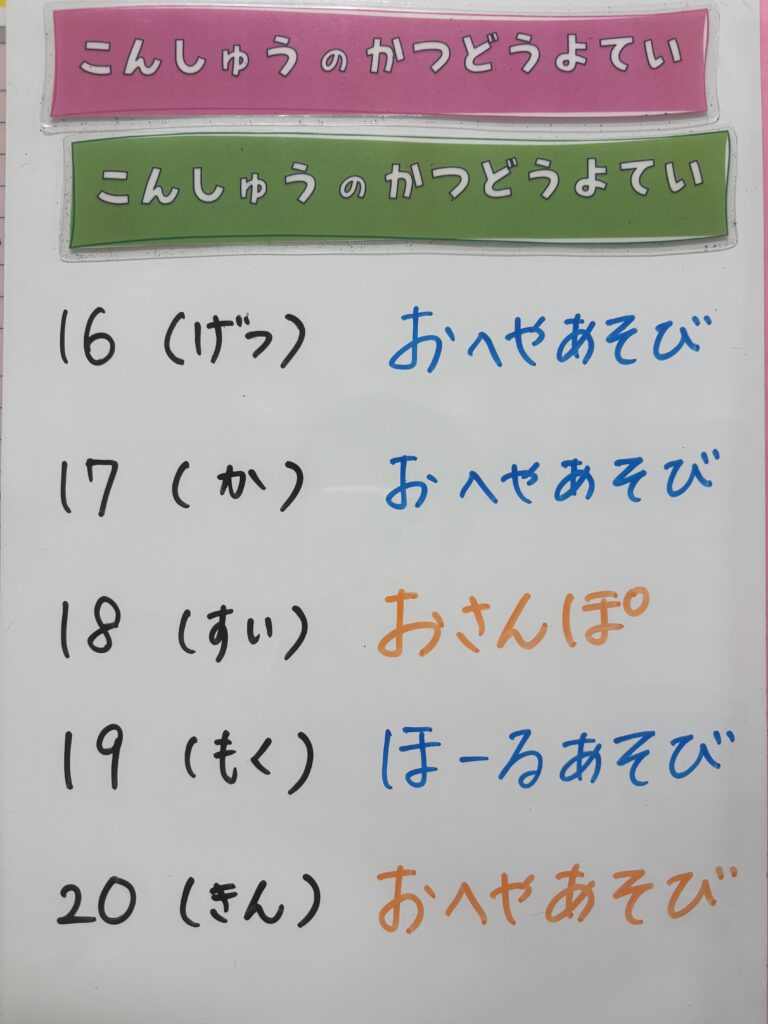 こんしゅうのかつどうよてい
こんしゅうのかつどうよてい
16 (げつ) おへやあそび
17 (か) おへやあそび
18 (すい) おさんぽ
19 (もく) ほーるあそび
20 (きん) おへやあそび